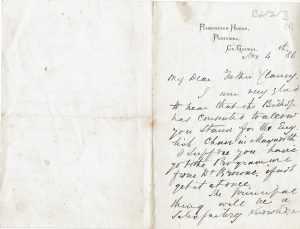 (1)
Parkington House,
Portumna,
Co. Galway.
Nov. 4th 86
My Dear Father Clancy
I am very glad
to hear that the Bishop
has consented to allow
you stand for the Eng
lish Chair in Maynooth
I suppose you have
got the Programme
from Dr Browne, if not
get it at once.
The principal
thing will be a
Satisfactory Knowledge